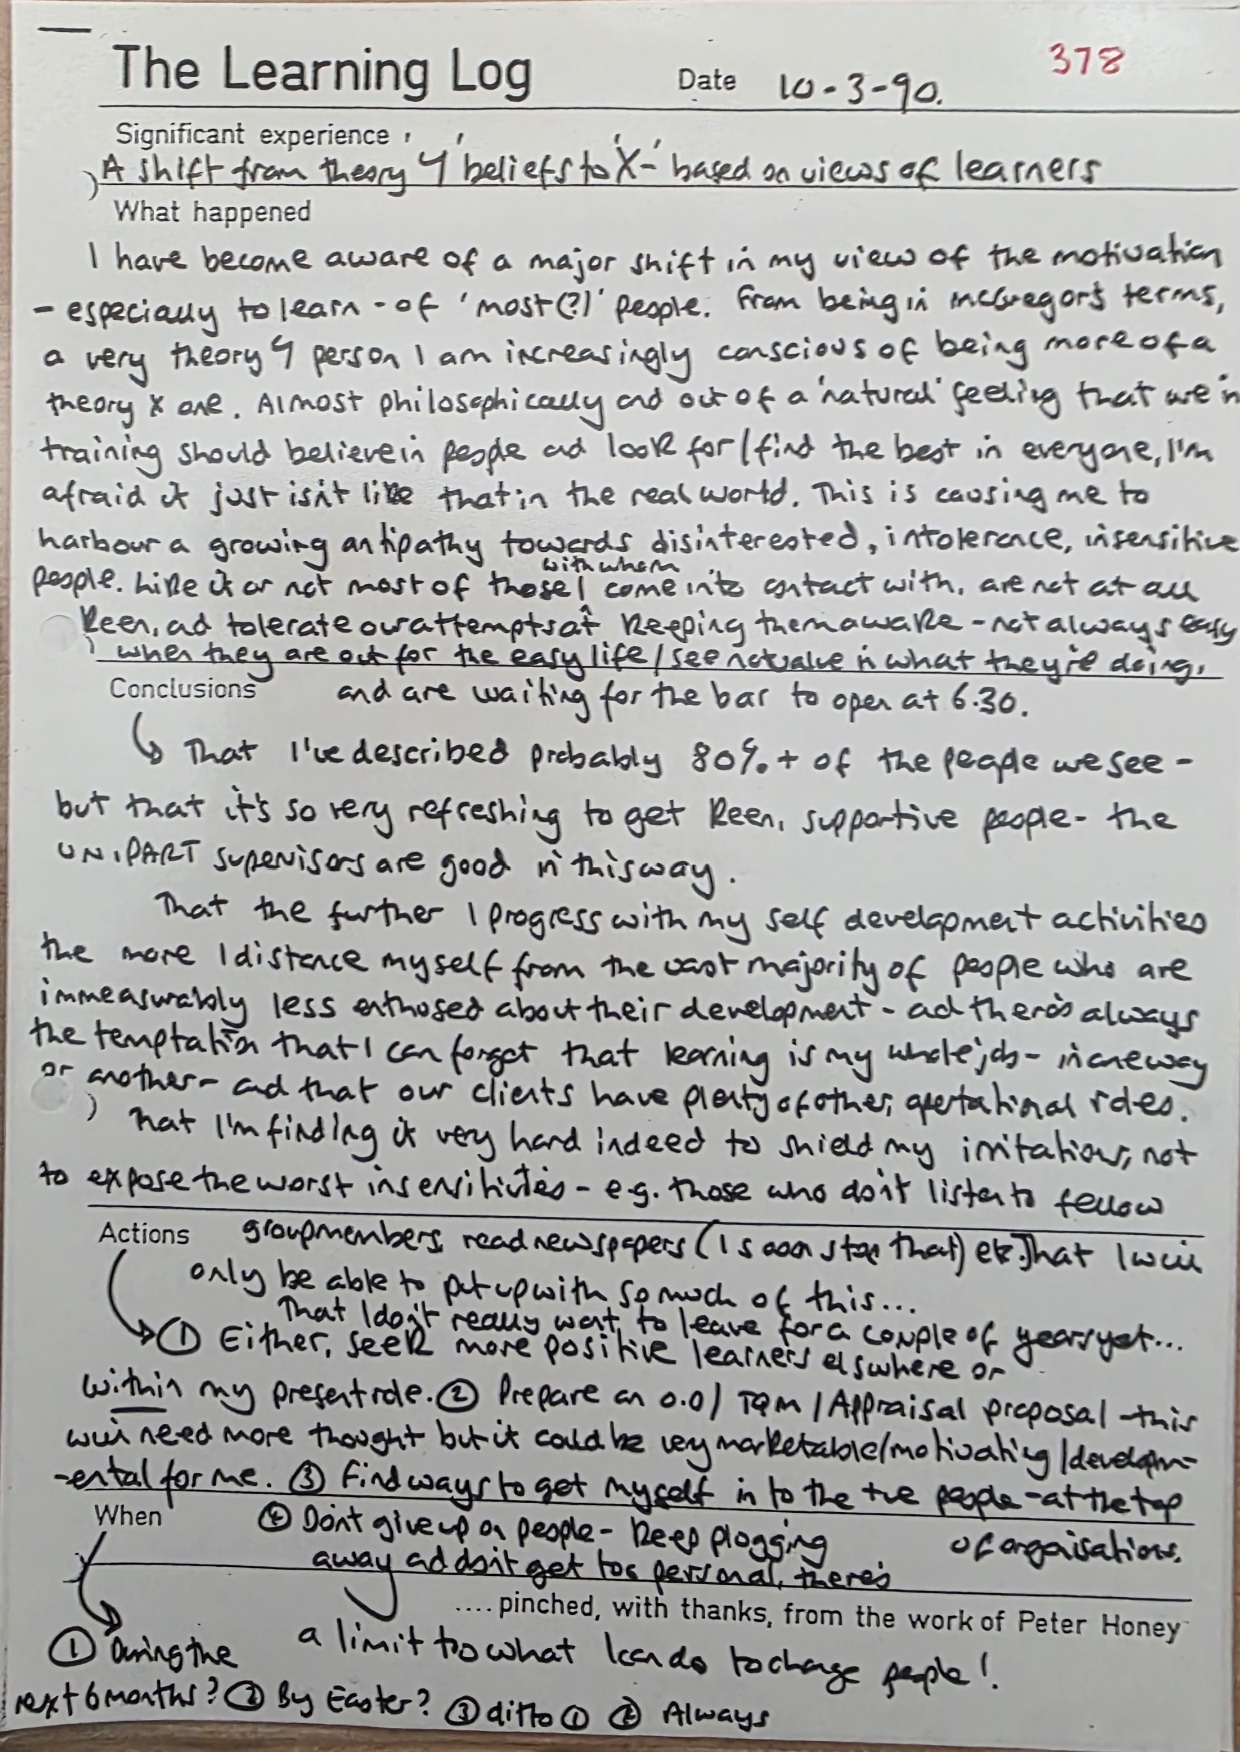 The Learning Log Date 10-3-90. 378
Significant experience
A shift from theory 'Y' beliefs to 'X' - based on views of learners
What happened
I have become aware of a major shift in my view of the motivation
- especially to learn - of 'most(?)' people. From being in McGregor's terms,
a very theory Y person I am increasingly conscious of being more of a
theory X one. Almost philosophically and out of a 'natural' feeling that we in
training should believe in people and look for/find the best in everyone, I'm
afraid it just isn't like that in the real world. This is causing me to
harbour a growing antipathy towards disinterested, intolerence, insensitive
people. Like it or not most of those with whom I come into contact with, are not at all
keen, and tolerate our attempts at keeping them aware - not always easy
when they are out for the easy life/see not value in what they're doing.
Conclusions and are waiting for the bar to open at 6.30.
That I've described probably 80%+ of the people we see -
but that it's so very refreshing to get keen, supportive people - the
UNIPART supervisors are good in this way.
That the further I progress with my self development activities
the more I distance myself from the vast majority of people who are
immeasurably less enthused about their development - and there's always
the temptation that I can forget that learning is my whole job - in one way
or another - and that our clients have plenty of other, operational roles.
That I'm finding it very hard indeed to shield my irritations, not
to expose the worst insensitivities - e.g. those who don't listen to fellow
Actions group members, read newspapers (I soon stop that) etc. That I will
only be able to put up with so much of this...
That I don't really want to leave for a couple of years yet...
① Either, seek more positive learners elswhere or
within my present role. ② Prepare an O.D/TQM/Appraisal proposal - this
will need more thought but it could be very marketable/motivating/developm-
-ental for me. ③ Find ways to get myself in to the +ve people - at the top
of organisations.
When ④ Don't give up on people - keep plogging
away and don't get too personal, there's
.... pinched, with thanks, from the work of Peter Honey
a limit to what I can do to change people!
① During the
next 6 months? ② By Easter? ③ ditto ① ④ Always